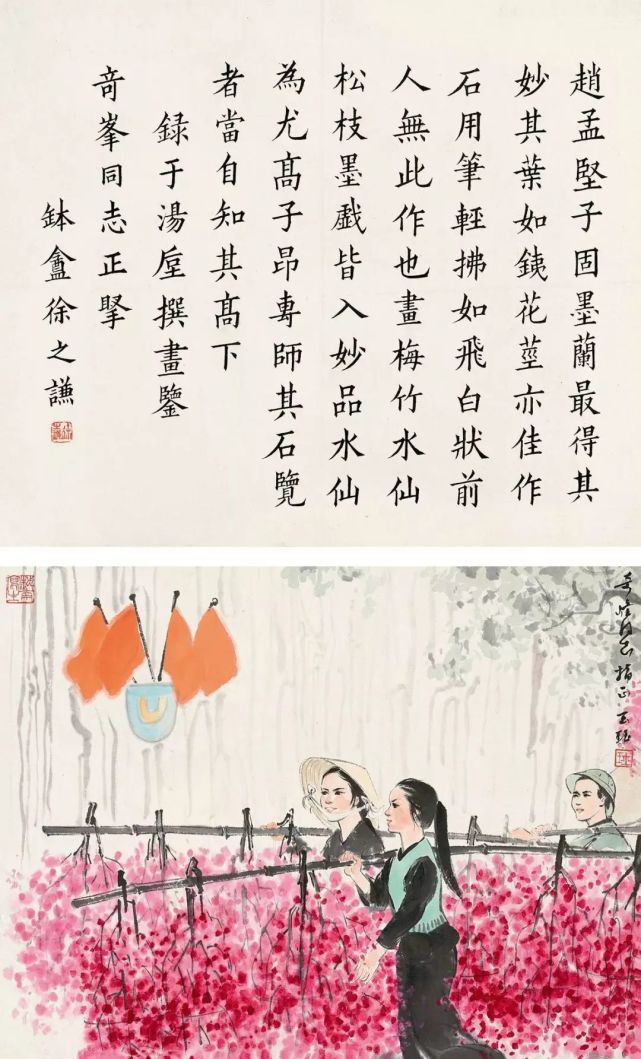 趙孟堅子固墨蘭最得其
妙其葉如銕花莖亦佳作
石用筆輕拂如飛白狀前
人無此作也畫梅竹水仙
松枝墨戲皆入妙品水仙
為尤髙子昂專師其石覽
者當自知其髙下
録于湯垕撰畫鑒
竒峯同志正
鉢盦徐之謙
奇峰同志指正 玉珏